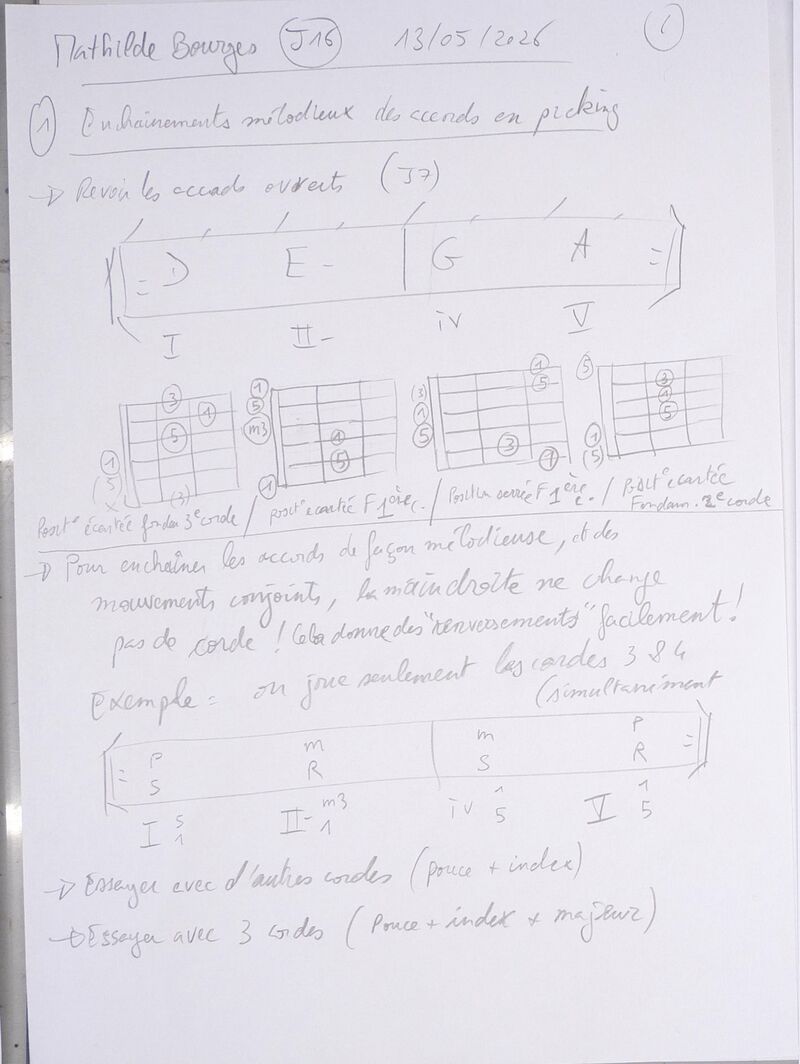 Mathilde Bourges J16 13/05/2026 1
1 Enchaînements mélodieux des accords en picking
→ Revoir les accords ouverts (J7)
D E- G A
I II- iv V
3 1 5 1 (5) X (3)
1 5 m3 1 5 1
(3) 1 5 1 5 3 1
5 3 1 5 1 (5)
Posit° écartée fondam 3e corde / posit° écartée F 1ère c. / Position serrée F 1ère c. / posit° écartée
Fondam. 2e corde
→ Pour enchaîner les accords de façon mélodieuse, et des
mouvements conjoints, la main droite ne change
pas de corde ! Cela donne des "renversements" facilement !
Exemple = on joue seulement les cordes 3 & 4
(simultanément
P m m P
S R S R
I 5 1 II- m3 1 iv 1 5 V 1 5
→ Essayer avec d'autres cordes (pouce + index)
→ Essayer avec 3 cordes (Pouce + index + majeur)